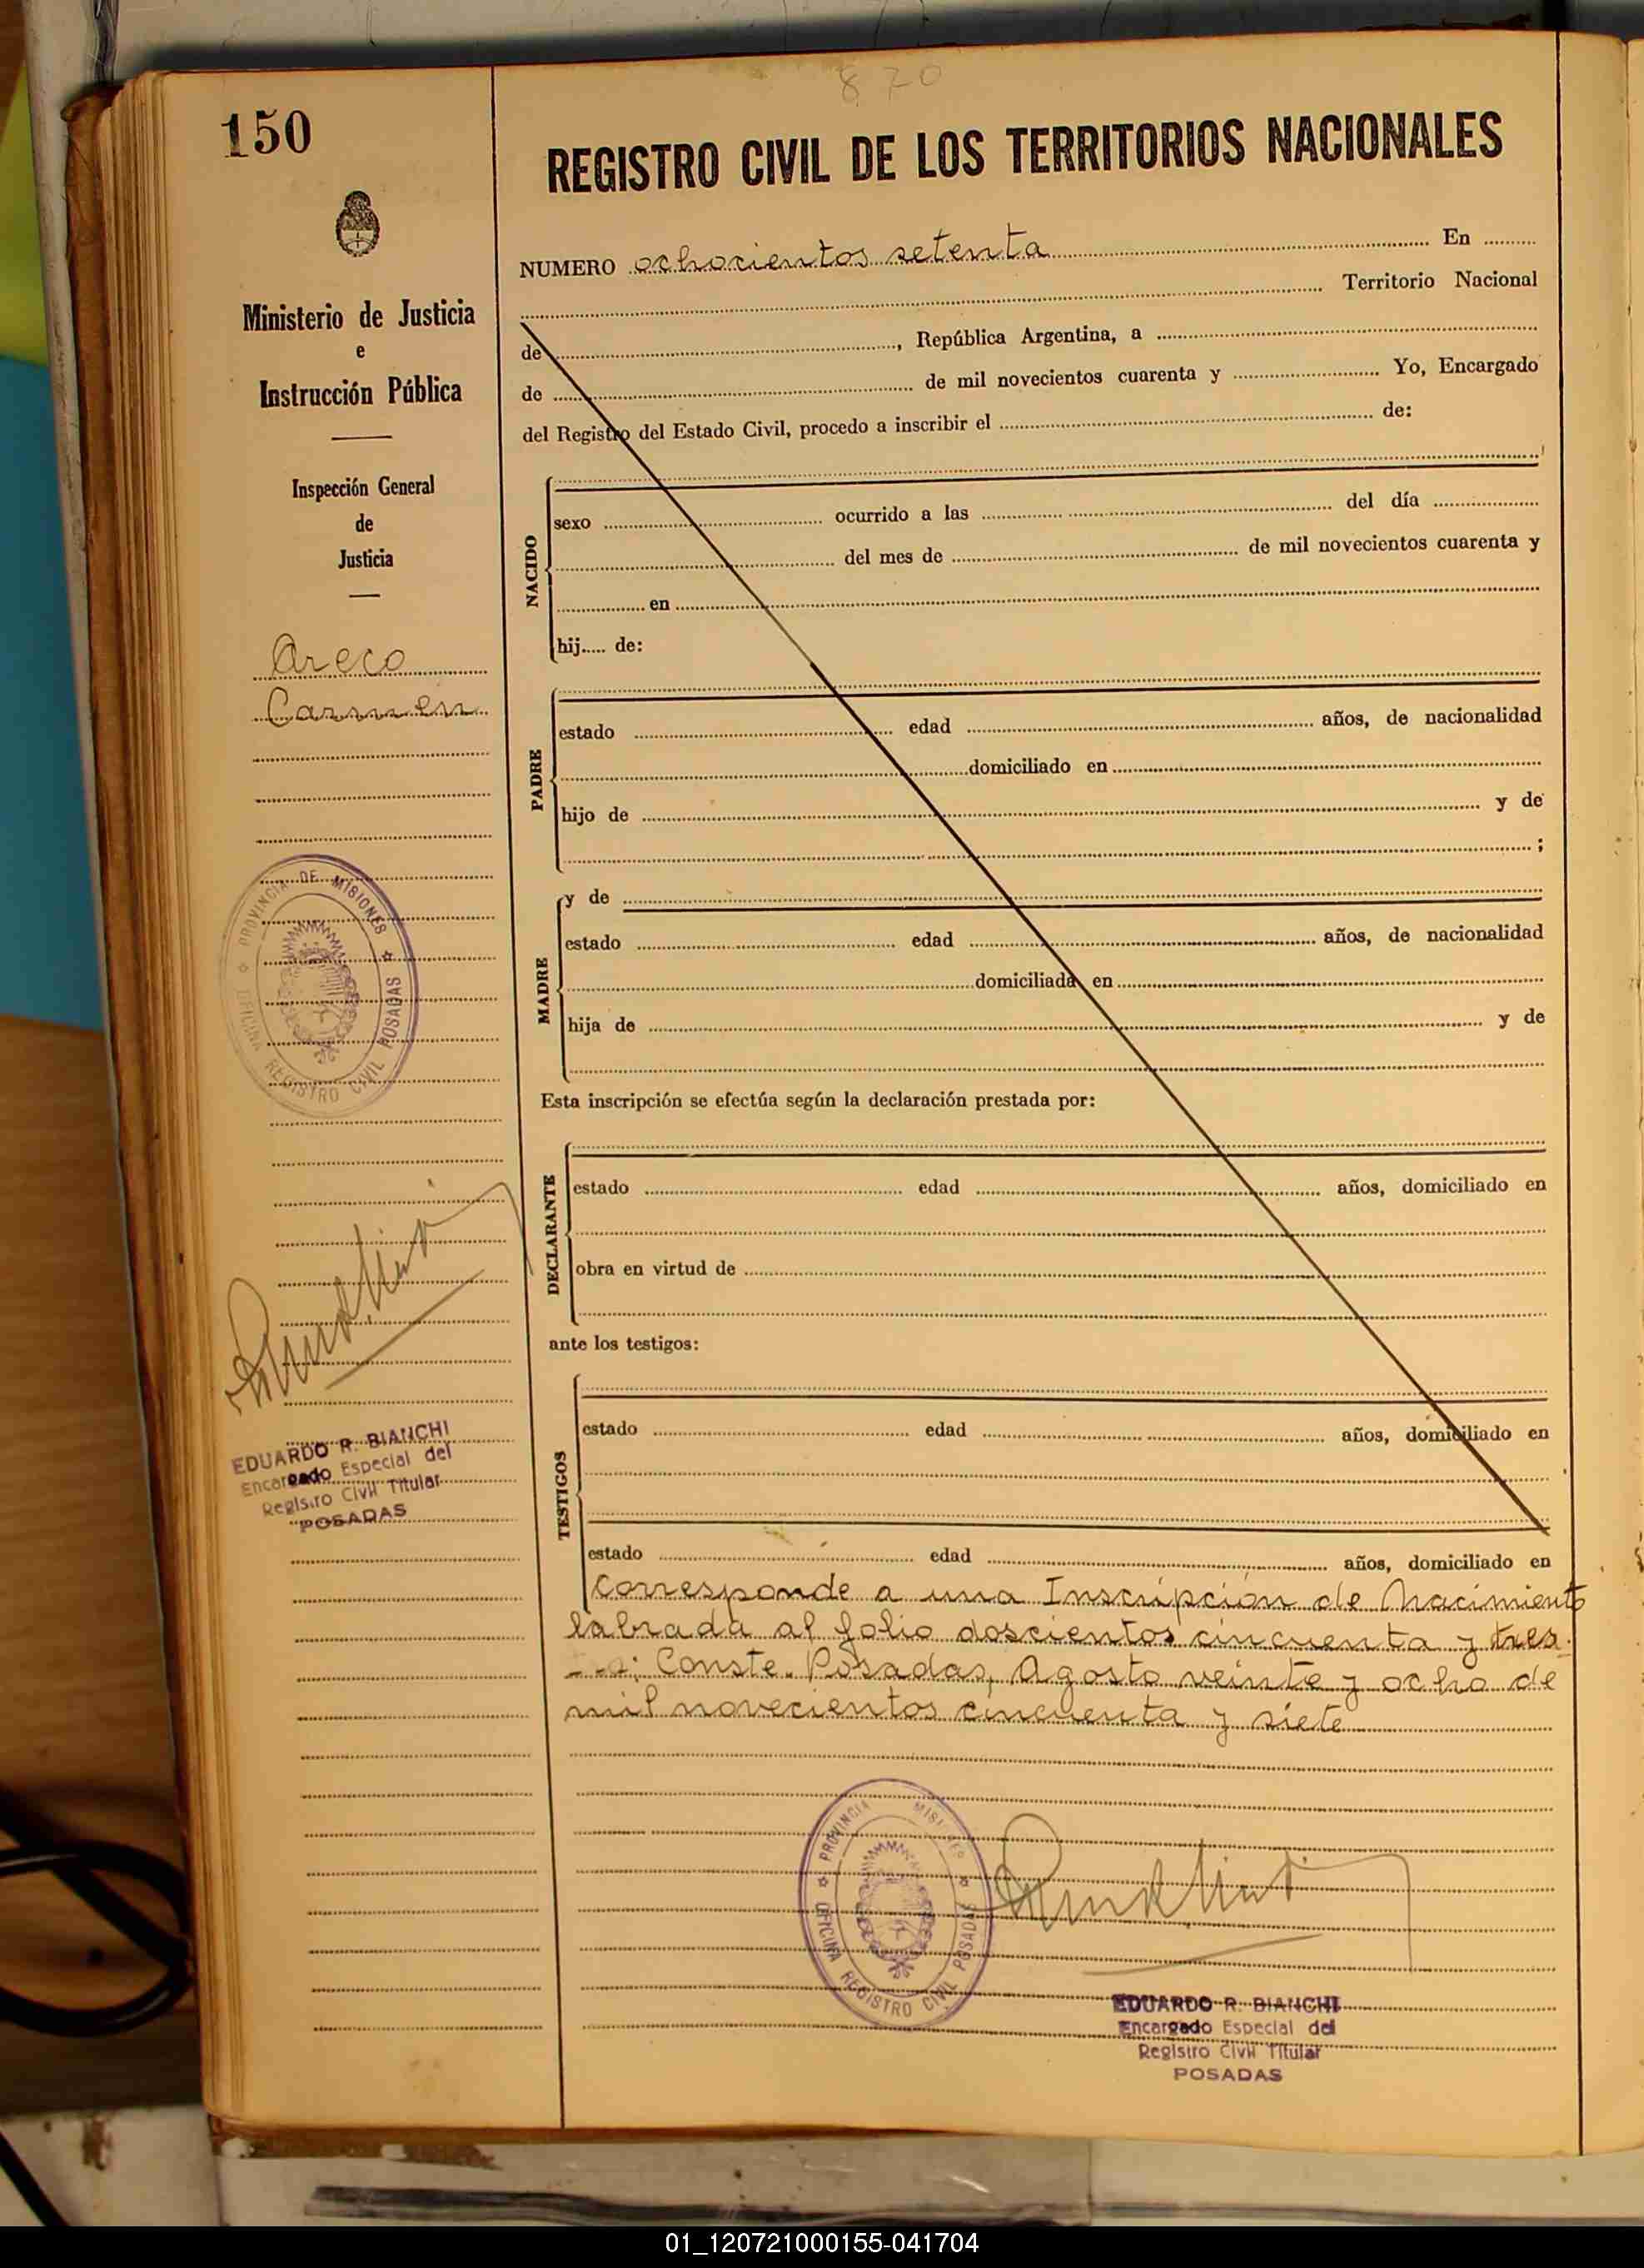 870
150
REGISTRO CIVIL DE LOS TERRITORIOS NACIONALES
Ministerio de Justicia
e
Instrucción Pública
Inspección General
de
Justicia
Areco
Carmen
PROVINCIA DE MISIONES
OFICINA REGISTRO CIVIL POSADAS
EDUARDO R. BIANCHI
Encargado Especial del
Registro Civil Titular
POSADAS
NUMERO ochocientos setenta En
Territorio Nacional
de , República Argentina, a
de de mil novecientos cuarenta y Yo, Encargado
del Registro del Estado Civil, procedo a inscribir el de:
NACIDO
sexo ocurrido a las del día
del mes de de mil novecientos cuarenta y
en
hij..... de:
PADRE
estado edad años, de nacionalidad
domiciliado en
hijo de y de
;
MADRE
y de
estado edad años, de nacionalidad
domiciliada en
hija de y de
Esta inscripción se efectúa según la declaración prestada por:
DECLARANTE
estado edad años, domiciliado en
obra en virtud de
ante los testigos:
TESTIGOS
estado edad años, domiciliado en
estado edad años, domiciliado en
Corresponde a una Inscripción de Nacimiento
labrada al folio doscientos cincuenta y tres.
Conste. Posadas, Agosto veinte y ocho de
mil novecientos cincuenta y siete
PROVINCIA MISIONES
OFICINA REGISTRO CIVIL POSADAS
EDUARDO R. BIANCHI
Encargado Especial del
Registro Civil Titular
POSADAS
01_120721000155-041704